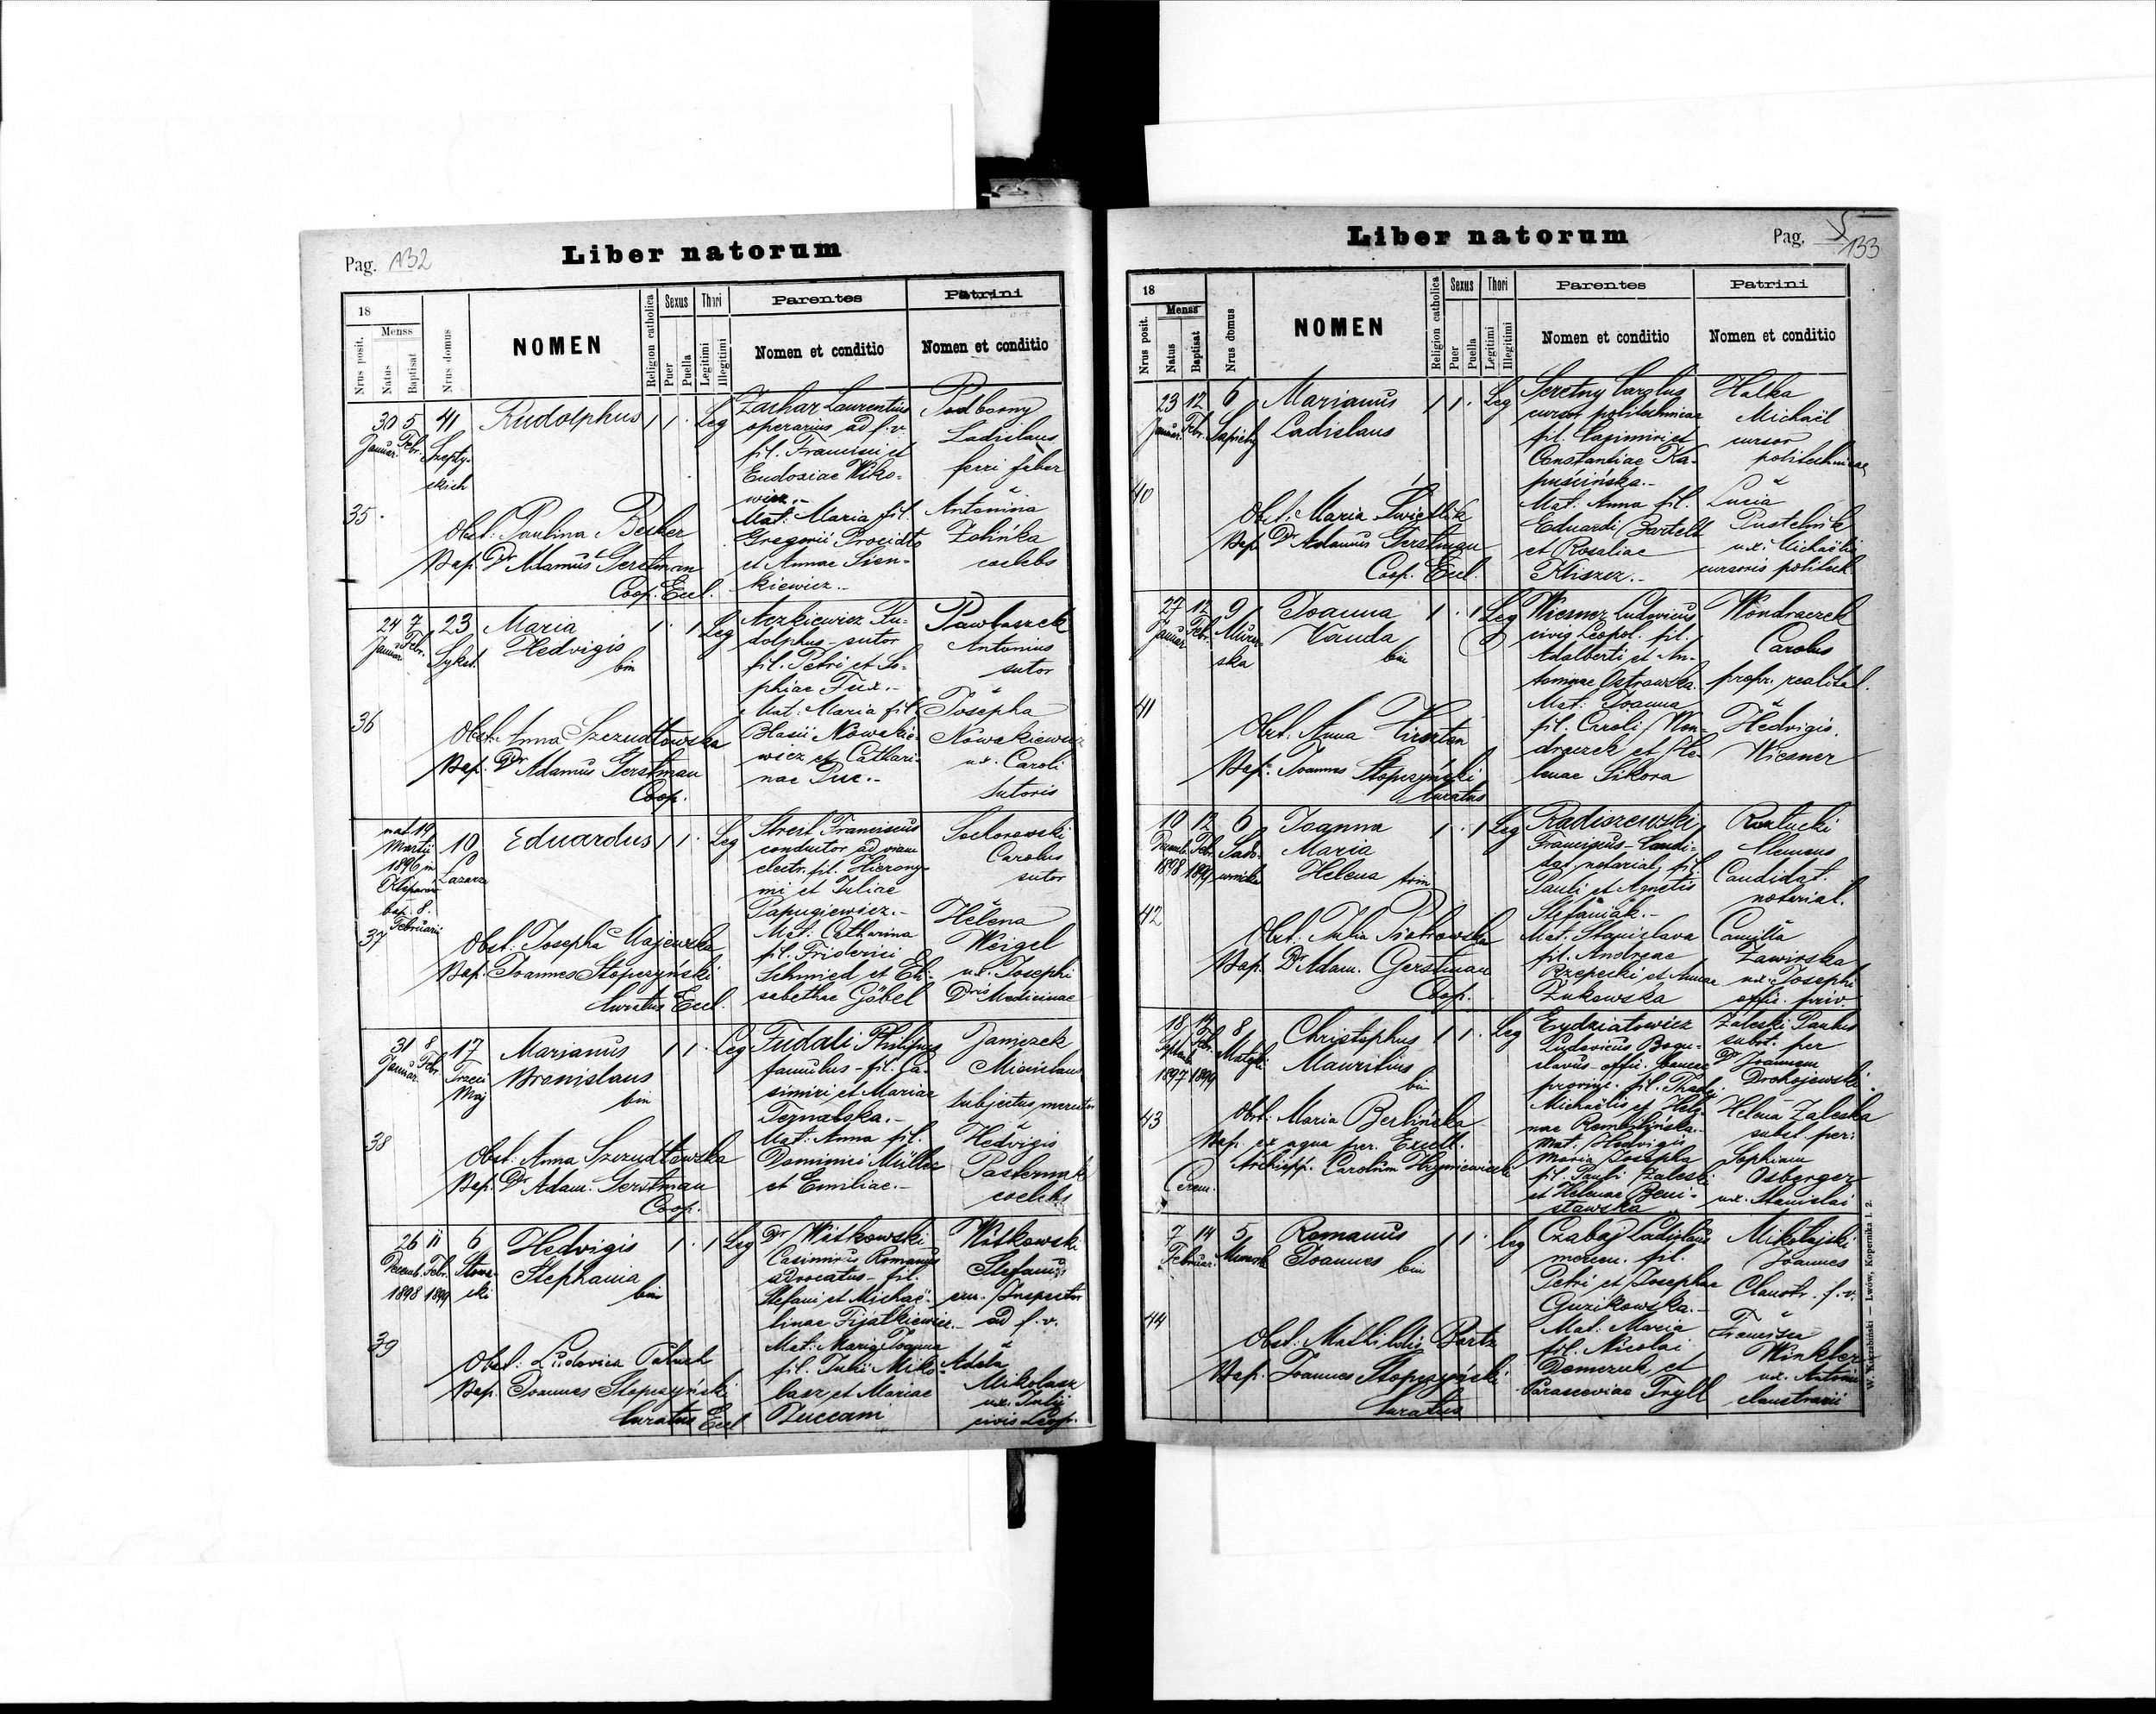 Pag. 132
Liber natorum
18
Menss
Nrus posit.
Natus
Baptisat
Nrus domus
NOMEN
Religion catholica
Sexus
Puer
Puella
Thori
Legitimi
Illegitimi
Parentes
Nomen et conditio
Patrini
Nomen et conditio
35
30 5 41
Januar. Febr. Szepty-
ckich
Rudolphus 1 1 . Leg
Obst: Paulina Becker
Bap. Dr Adamus Gerstman
Coop. Eccl.
Zachar Laurentius
operarius ad f. v.
fil. Francisci et
Eudosiae Wiko-
wicz.-
Mat: Maria fil.
Gregorii
et Annae Sien-
kiewicz.-
Podborny
Ladislaus
ferri faber
Antonina
coelebs
36
24 7 23
Januar Febr. Sykst.
Maria
Hedvigis
bin
1 . 1 Leg
Obst. Anna Szczudłowska
Bap. Dr Adamus Gerstman
Coop.
dolphus - sutor
fil. Petri et So-
phiae Fux.-
Mat: Maria fil.
Blasii Nowakie-
wicz et Cathari-
nae Duc.-
Pawłaszek
Antonius
sutor
Josepha
Nowakiewicz
ux. Caroli
sutoris
37
nat. 19
Martii
1896 in
bap. 8.
Februarii
10
Lazarza
Eduardus 1 1 . Leg
Obst: Josepha Majewska
Bap. Joannes Stopczyński
Curatus Eccl.
Franciscus
conductor ad viam
electr. fil. Hierony-
mi et Juliae
Papugiewicz.-
Mat: Catharina
fil. Friderici
Schmied et Eli-
sabethae Göbel
Carolus
sutor
Helena
Weigel
ux. Josephi
Dris Medicinae
38
31 8 17
Januar Febr. Trzeci
Maj
Marianus
Bronislaus
bin
1 1 . Leg
Obst. Anna Szczudłowska
Bap. Dr Adam. Gerstman
Coop.
Fudali Philipus
famulus - fil. Ca-
simiri et Mariae
Mat: Anna fil.
Dominici Müller
et Emiliae.-
Janiczek
Miecislaus
subjectus mercator
Hedvigis
Pasternak
coelebs
39
26 11 6
Decemb. Febr. Słowa-
1898 1899 cki
Hedvigis
Stephania
bin
1 . 1 Leg
Obst: Ludovica
Bap. Joannes Stopczyński
Curatus Eccl
Dr Witkowski
Casimirus Romanus
advocatus - fil.
Stefani et Michaë-
linae Fijałkiewicz.-
Mat: Maria Joanna
fil. Julii Miko-
lasz et Mariae
Zuccani
Witkowski
Stefanus
em. Inspector
ad f. v.
Adela
Mikolasz
ux. Julii
civis Leop.
Liber natorum
Pag. 133
18
Menss
Nrus posit.
Natus
Baptisat
Nrus domus
NOMEN
Religion catholica
Sexus
Puer
Puella
Thori
Legitimi
Illegitimi
Parentes
Nomen et conditio
Patrini
Nomen et conditio
40
23 12 6
Januar. Febr. Sapiehy
Marianus
Ladislaus
1 1 . Leg
Obst: Maria Świetlik
Bap. Dr Adamus Gerstman
Coop. Eccl.
Seretny Carolus
cursor politechnicae
fil. Casimiri et
Constantiae Ka-
puścińska.-
Mat. Anna fil.
Eduardi Bartelt
et Rosaliae
Kliszcz.-
Halka
Michaël
cursor
politechnicae
Lucia
Pustelnik
ux. Michaëlis
cursoris politech.
41
27 12 9
Januar Febr. Murar-
ska
Joanna
Vanda
bin
1 . 1 Leg
Obst. Anna
Bap. Joannes Stopczyński
Curatus
Wiesner Ludovicus
civis Leopol. fil.
Adalberti et An-
toninae Ostrowska.
Mat: Joanna
fil. Caroli Won-
draczek et He-
lenae Sikora
Wondraczek
Carolus
propr. realitat.
Hedvigis
Wiesner
42
10 12 6
Decemb. Febr. Sado-
1898 1899 wnicka
Joanna
Maria
Helena trin
1 . 1 Leg
Obst. Julia Piotrowska
Bap. Dr Adam. Gerstman
Coop.
Radiszewski
Franciscus - Candi-
dat. notarial. fil.
Pauli et Agnetis
Stefaniak.-
Mat: Stanislava
fil. Andreae
Rzepecki et Annae
Żukowska
Clemens
Candidat.
notarial.
Camilla
Zawirska
ux. Josephi
offic. priv.
43
18 14 8
Septemb. Febr. Matejki
1897 1899
Christophus
Mauritius
bin
1 1 . Leg
Obst. Maria Berlińska
Bap. ex aqua per. Excell.
Archiepp. Carolum Hryniewiecki
Cerem.
Ludovicus Bogu-
slavus offic.
provinc. fil. Thad.
Michaëlis et Hele-
nae Rembilińska.-
Mat: Hedvigis
Maria Josepha
fil. Pauli Zaleski
et Helenae Beni-
sławska
Zaleski Paulus
subst. per
Dr Joannem
Drohojewski.
Helena Zaleska
subst per:
Sophiam
Osberger
ux. Stanislai
44
7 14 5
Februar.
Romanus
Joannes
bin
1 1 . leg
Obst: Mathildis Bartz
Bap. Joannes Stopczyński
Curatus
Czabaj Ladislaus
mercen. fil.
Petri et Josephae
Guzikowska.-
Mat: Maria
fil. Nicolai
Demczuk et
Parasceviae Tryll
Mikołajski
Joannes
Claustr. f. v.
Francisca
Winkler
ux. Antonii
claustrarii
W. Kuczabiński — Lwów, Kopernika l. 2.